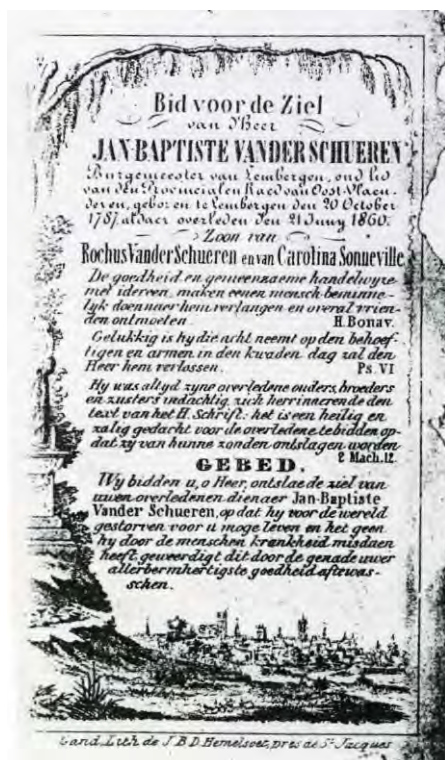 Bid voor de Ziel
van d'Heer
JAN-BAPTISTE VANDER SCHUEREN
Burgemeester van Lembergen, oud lid
van den Provincialen Raed van Oost-Vlaen-
deren, geboren te Lembergen den 20 October
1787, aldaer overleden den 21 Juny 1860.
Zoon van
Rochus Vander Schueren en van Carolina Sonneville
De goedheid en gemeenzaeme handelwyze
met idereen, maken eenen mensch beminne-
lyk doen naer hem verlangen en overal vrien-
den ontmoeten. H. Bonav.
Gelukkig is hy die acht neemt op den behoef-
tigen en armen in den kwaden dag zal den
Heer hem verlossen. Ps. VI
Hy was altyd zyne overledene ouders, broeders
en zusters indachtig, zich herrinnerende den
text van het H. Schrift: het is een heilig en
zalig gedacht voor de overledene te bidden op-
dat zy van hunne zonden ontslagen worden
2 Mach. 12.
GEBED.
Wy bidden u, o Heer, ontslae de ziel van
uwen overledenen dienaer Jan-Baptiste
Vander Schueren, op dat hy voor de wereld
gestorven voor u moge leven en het geen
hy door de menschen krankheid misdaen
heeft, geweerdigt dit door de genade uwer
allerbermhertigste goedheid aftewas-
schen.
Gand, Lith de J.B.D. Hemelsoet, près de St. Jacques